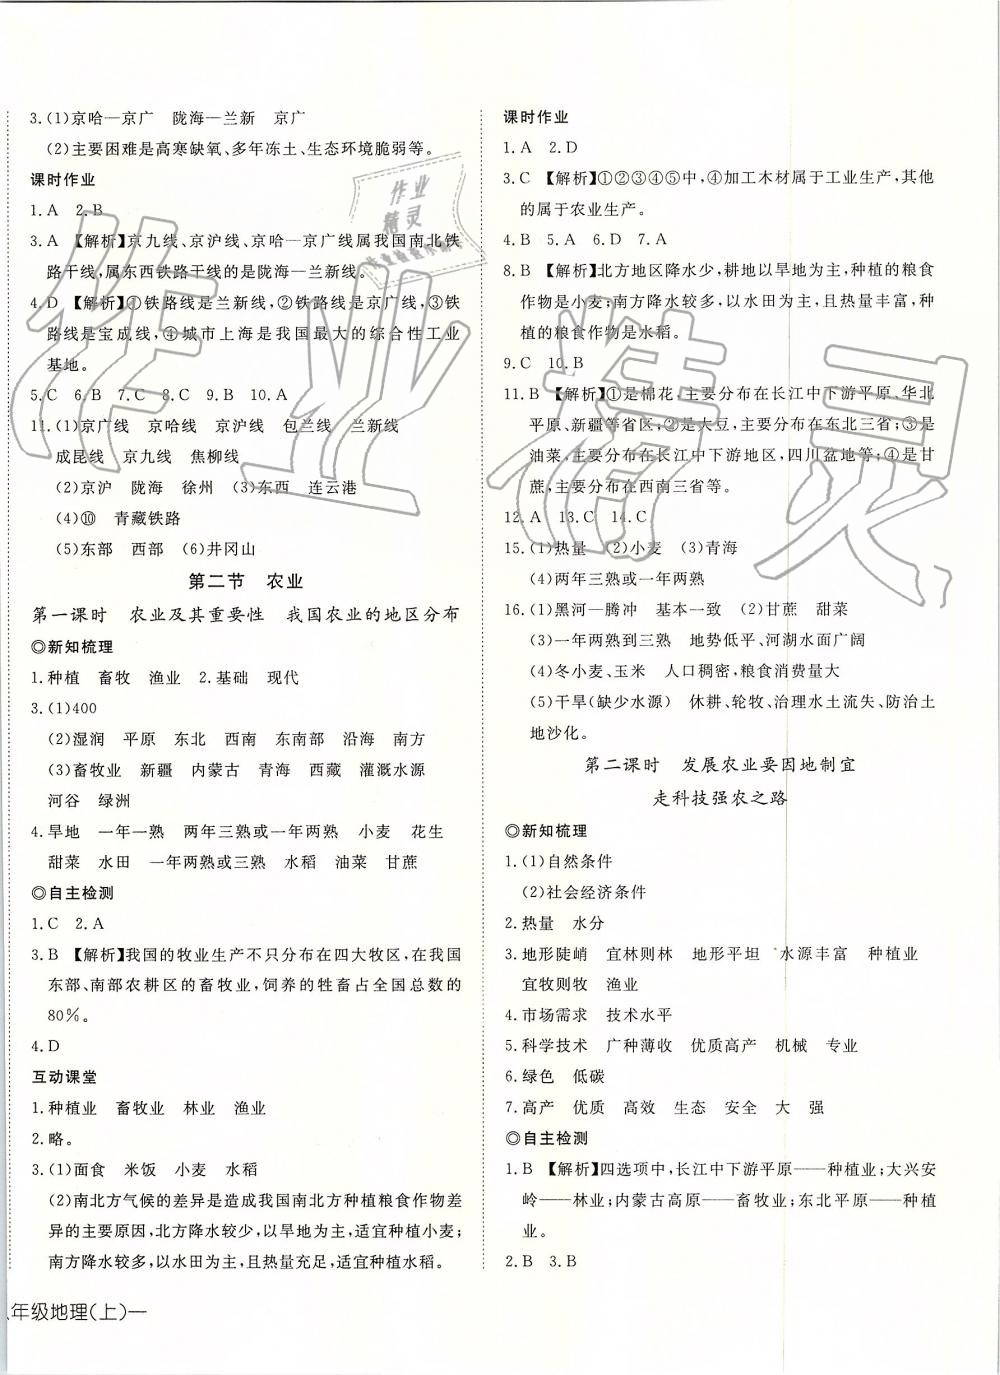 3.(1)京哈—京广　陇海—兰新　京广
(2)主要困难是高寒缺氧、多年冻土、生态环境脆弱等。
课时作业
1.A　2.B
3.A　【解析】京九线、京沪线、京哈—京广线属我国南北铁
路干线,属东西铁路干线的是陇海—兰新线。
4.D　【解析】①铁路线是兰新线,②铁路线是京广线,③铁
路线是宝成线,④城市上海是我国最大的综合性工业
基地。
5.C　6.B　7.B　8.C　9.B　10.A
11.(1)京广线　京哈线　京沪线　包兰线　兰新线
成昆线　京九线　焦柳线
(2)京沪　陇海　徐州　(3)东西　连云港
(4)⑩　青藏铁路
(5)东部　西部　(6)井冈山
第二节　农业
第一课时　农业及其重要性　我国农业的地区分布
◎新知梳理
1.种植　畜牧　渔业　2.基础　现代
3.(1)400
(2)湿润　平原　东北　西南　东南部　沿海　南方
(3)畜牧业　新疆　内蒙古　青海　西藏　灌溉水源
河谷　绿洲
4.旱地　一年一熟　两年三熟或一年两熟　小麦　花生
甜菜　水田　一年两熟或三熟　水稻　油菜　甘蔗
◎自主检测
1.C　2.A
3.B　【解析】我国的牧业生产不只分布在四大牧区,在我国
东部、南部农耕区的畜牧业,饲养的牲畜占全国总数的
80%。
4.D
互动课堂
1.种植业　畜牧业　林业　渔业
2.略。
3.(1)面食　米饭　小麦　水稻
(2)南北方气候的差异是造成我国南北方种植粮食作物差
异的主要原因,北方降水较少,以旱地为主,适宜种植小麦;
南方降水较多,以水田为主,适宜种植水稻。
年级地理(上)—
课时作业
1.A　2.D
3.C　【解析】①②③④⑤中,④加工木材属于工业生产,其他
的属于农业生产。
4.B　5.A　6.D　7.A
8.B　【解析】北方地区降水少,耕地以旱地为主,种植的粮食
作物是小麦;南方降水较多,以水田为主,且热量丰富,种
植的粮食作物是水稻。
9.C　10.B
11.B　【解析】①是棉花,主要分布在长江中下游平原、华北
平原、新疆等省区;②是大豆,主要分布在东北三省;③是
油菜,主要分布在长江中下游地区,四川盆地等;④是甘
蔗,主要分布在西南三省等。
12.A　13.C　14.C
15.(1)热量　(2)小麦　(3)青海
(4)两年三熟或一年两熟
16.(1)黑河—腾冲　基本一致　(2)甘蔗　甜菜
(3)一年两熟到三熟　地势低平、河湖水面广阔
(4)冬小麦、玉米　人口稠密,粮食消费量大
(5)干旱(缺少水源)　休耕、轮牧、治理水土流失、防治土
地沙化。
第二课时　发展农业要因地制宜
走科技强农之路
◎新知梳理
1.(1)自然条件
(2)社会经济条件
2.热量　水分
3.地形陡峭　宜林则林　地形平坦　水源丰富　种植业
宜牧则牧　渔业
4.市场需求　技术水平
5.科学技术　广种薄收　优质高产　机械　专业
6.绿色　低碳
7.高产　优质　高效　生态　安全　大　强
◎自主检测
1.B　【解析】四选项中,长江中下游平原——种植业;大兴安
岭——林业;内蒙古高原——畜牧业;东北平原——种植
业。
2.B　3.B
作业精灵
作业
精灵